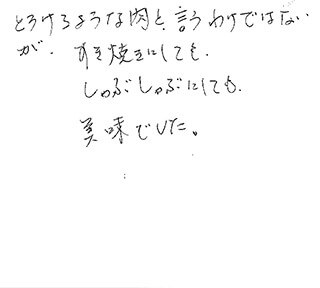 とろけるような肉と、言うわけではない
が、すき焼きにしても、
しゃぶしゃぶにしても、
美味でした。